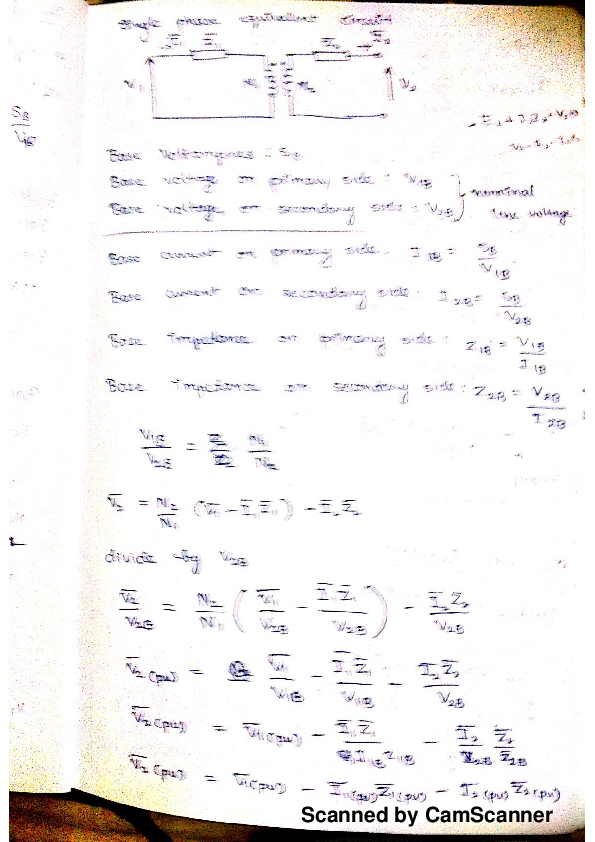 single phase equivalent circuit
I̅₁ Z̅₁ Z̅₂ I̅₂
V₁ N₁ N₂ V₂
S_B
V_1B
Base Voltamperes : S_B
Base voltage on primary side : V_1B
nominal
Base voltage on secondary side : V_2B
line voltage
Base current on primary side : I_1B = S_B / V_1B
Base current on secondary side : I_2B = S_B / V_2B
Base Impedance on primary side : Z_1B = V_1B / I_1B
Base Impedance on secondary side : Z_2B = V_2B / I_2B
V_1B / V_2B = N₁ / N₂
V̅₂ = N₂ / N₁ (V̅₁ - I̅₁ Z̅₁) - I̅₂ Z̅₂
divide by V_2B
V̅₂ / V_2B = N₂ / N₁ ( V̅₁ / V_2B - I̅₁ Z̅₁ / V_2B ) - I̅₂ Z̅₂ / V_2B
V̅₂(pu) = V̅₁ / V_1B - I̅₁ Z̅₁ / V_1B - I̅₂ Z̅₂ / V_2B
V̅₂(pu) = V̅₁(pu) - I̅₁ Z̅₁ / I_1B Z_1B - I̅₂ / I_2B Z̅₂ / Z_2B
V̅₂(pu) = V̅₁(pu) - I̅₁(pu) Z̅₁(pu) - I̅₂(pu) Z̅₂(pu)
Scanned by CamScanner